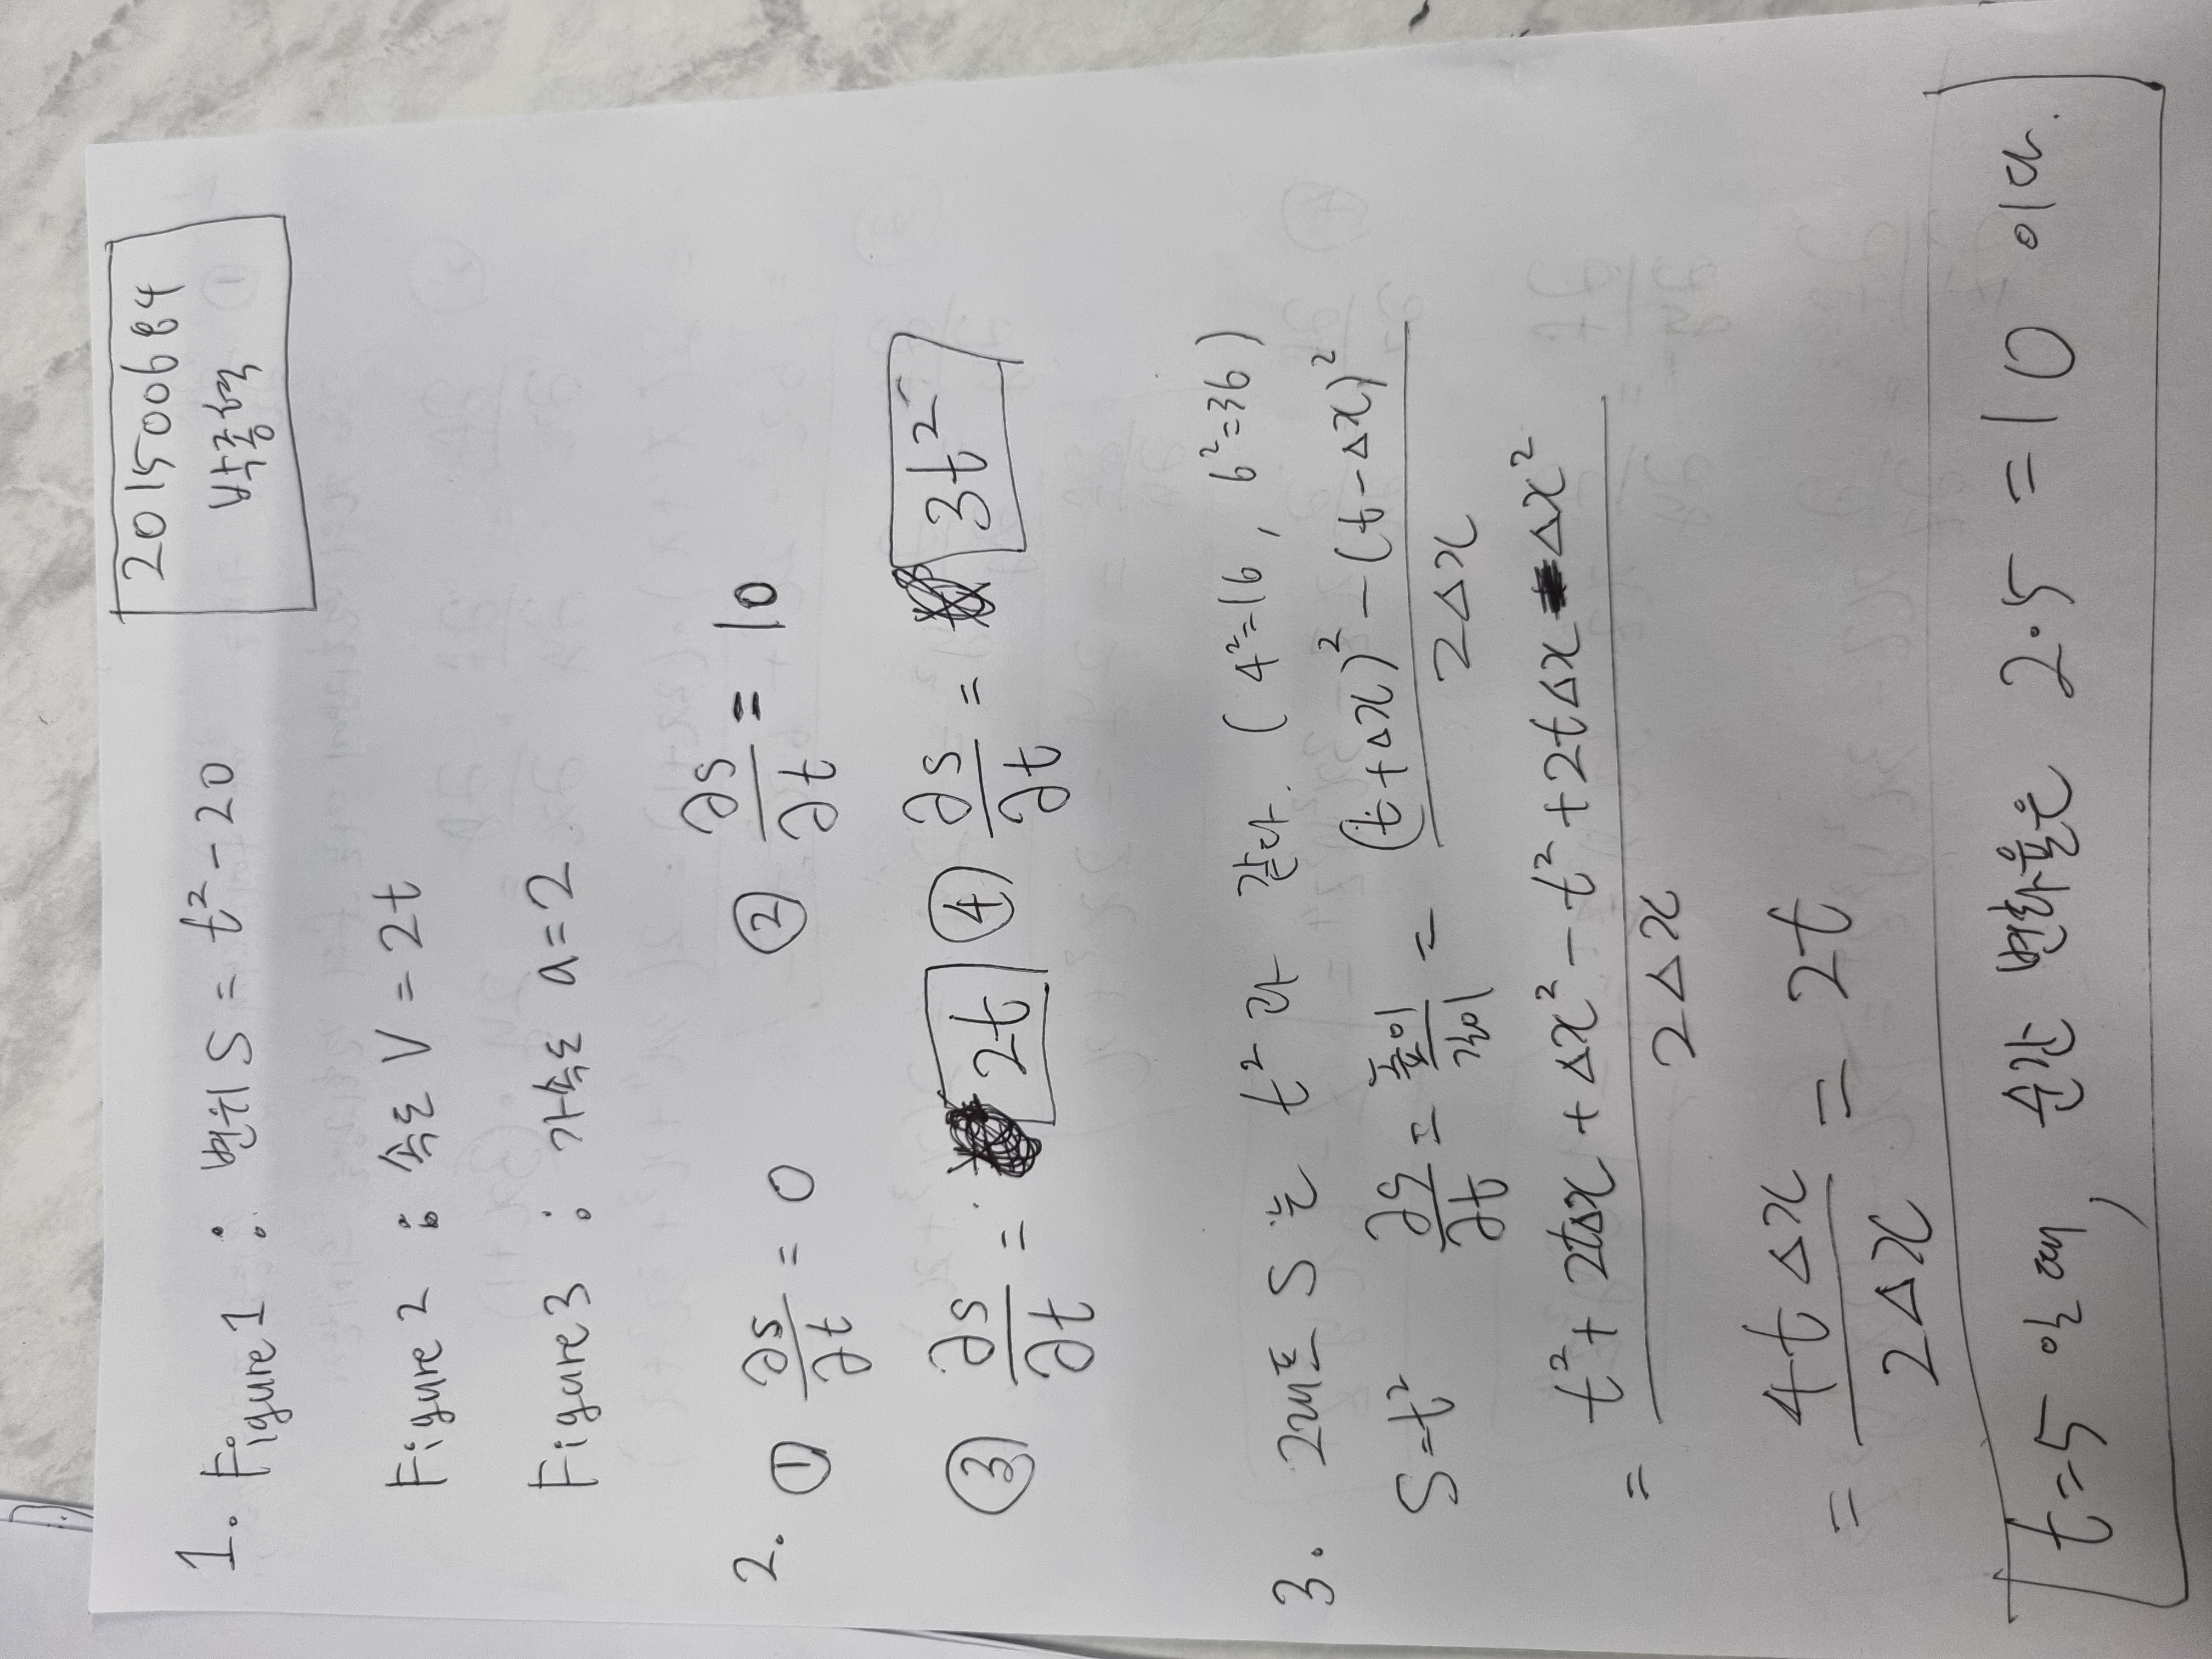 201500684
박종혁
1. Figure 1 : 변위 S = t² - 20
Figure 2 : 속도 V = 2t
Figure 3 : 가속도 a = 2
2. ① ∂s/∂t = 0 ② ∂s/∂t = 10
③ ∂s/∂t = 2t ④ ∂s/∂t = 3t²
3. 그래프 S는 t²과 같다. ( 4²=16 , 6²=36 )
S=t² ∂s/∂t = 높이/길이 = (t+Δx)² - (t-Δx)² / 2Δx
= t² + 2tΔx + Δx² - t² + 2tΔx - Δx² / 2Δx
= 4tΔx / 2Δx = 2t
t=5 일 때, 순간 변화율은 2·5 = 10 이다.